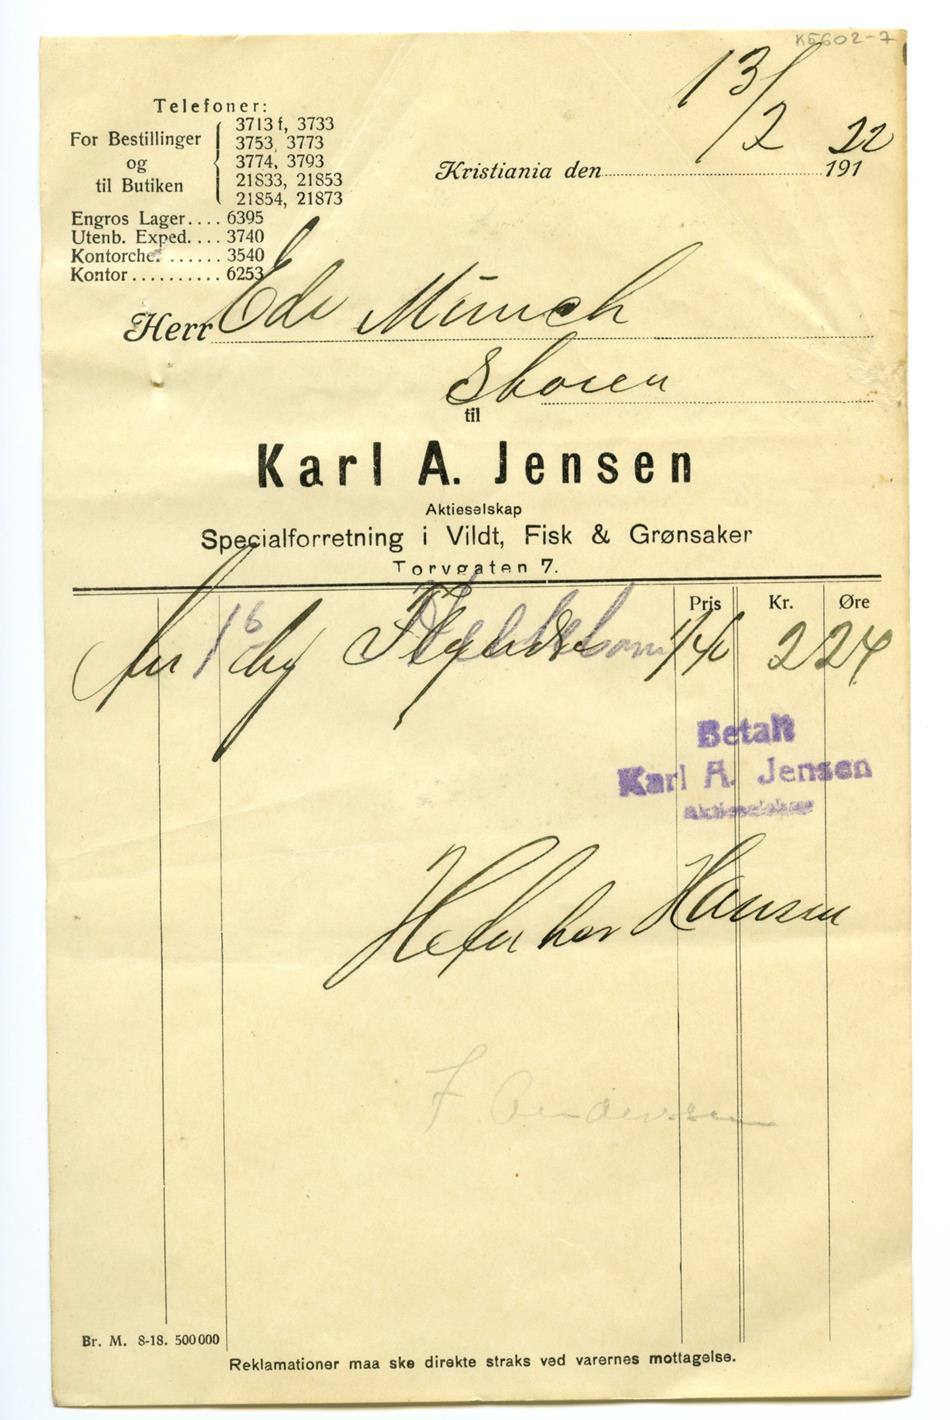 K5602-7
13/2 22
Telefoner:
For Bestillinger og til Butiken
3713 f, 3733
3753, 3773
3774, 3793
21833, 21853
21854, 21873
Kristiania den 191
Engros Lager.... 6395
Utenb. Exped.... 3740
Kontorchef ...... 3540
Kontor .......... 6253
Herr Edv Munch
Skøien
til
Karl A. Jensen
Aktieselskap
Specialforretning i Vildt, Fisk & Grønsaker
Torvgaten 7.
Pris Kr. Øre
1/40 2 24
Betalt
Karl A. Jensen
Aktieselskap
Hansen
F Andersen
Br. M. 8-18. 500000
Reklamationer maa ske direkte straks ved varernes mottagelse.